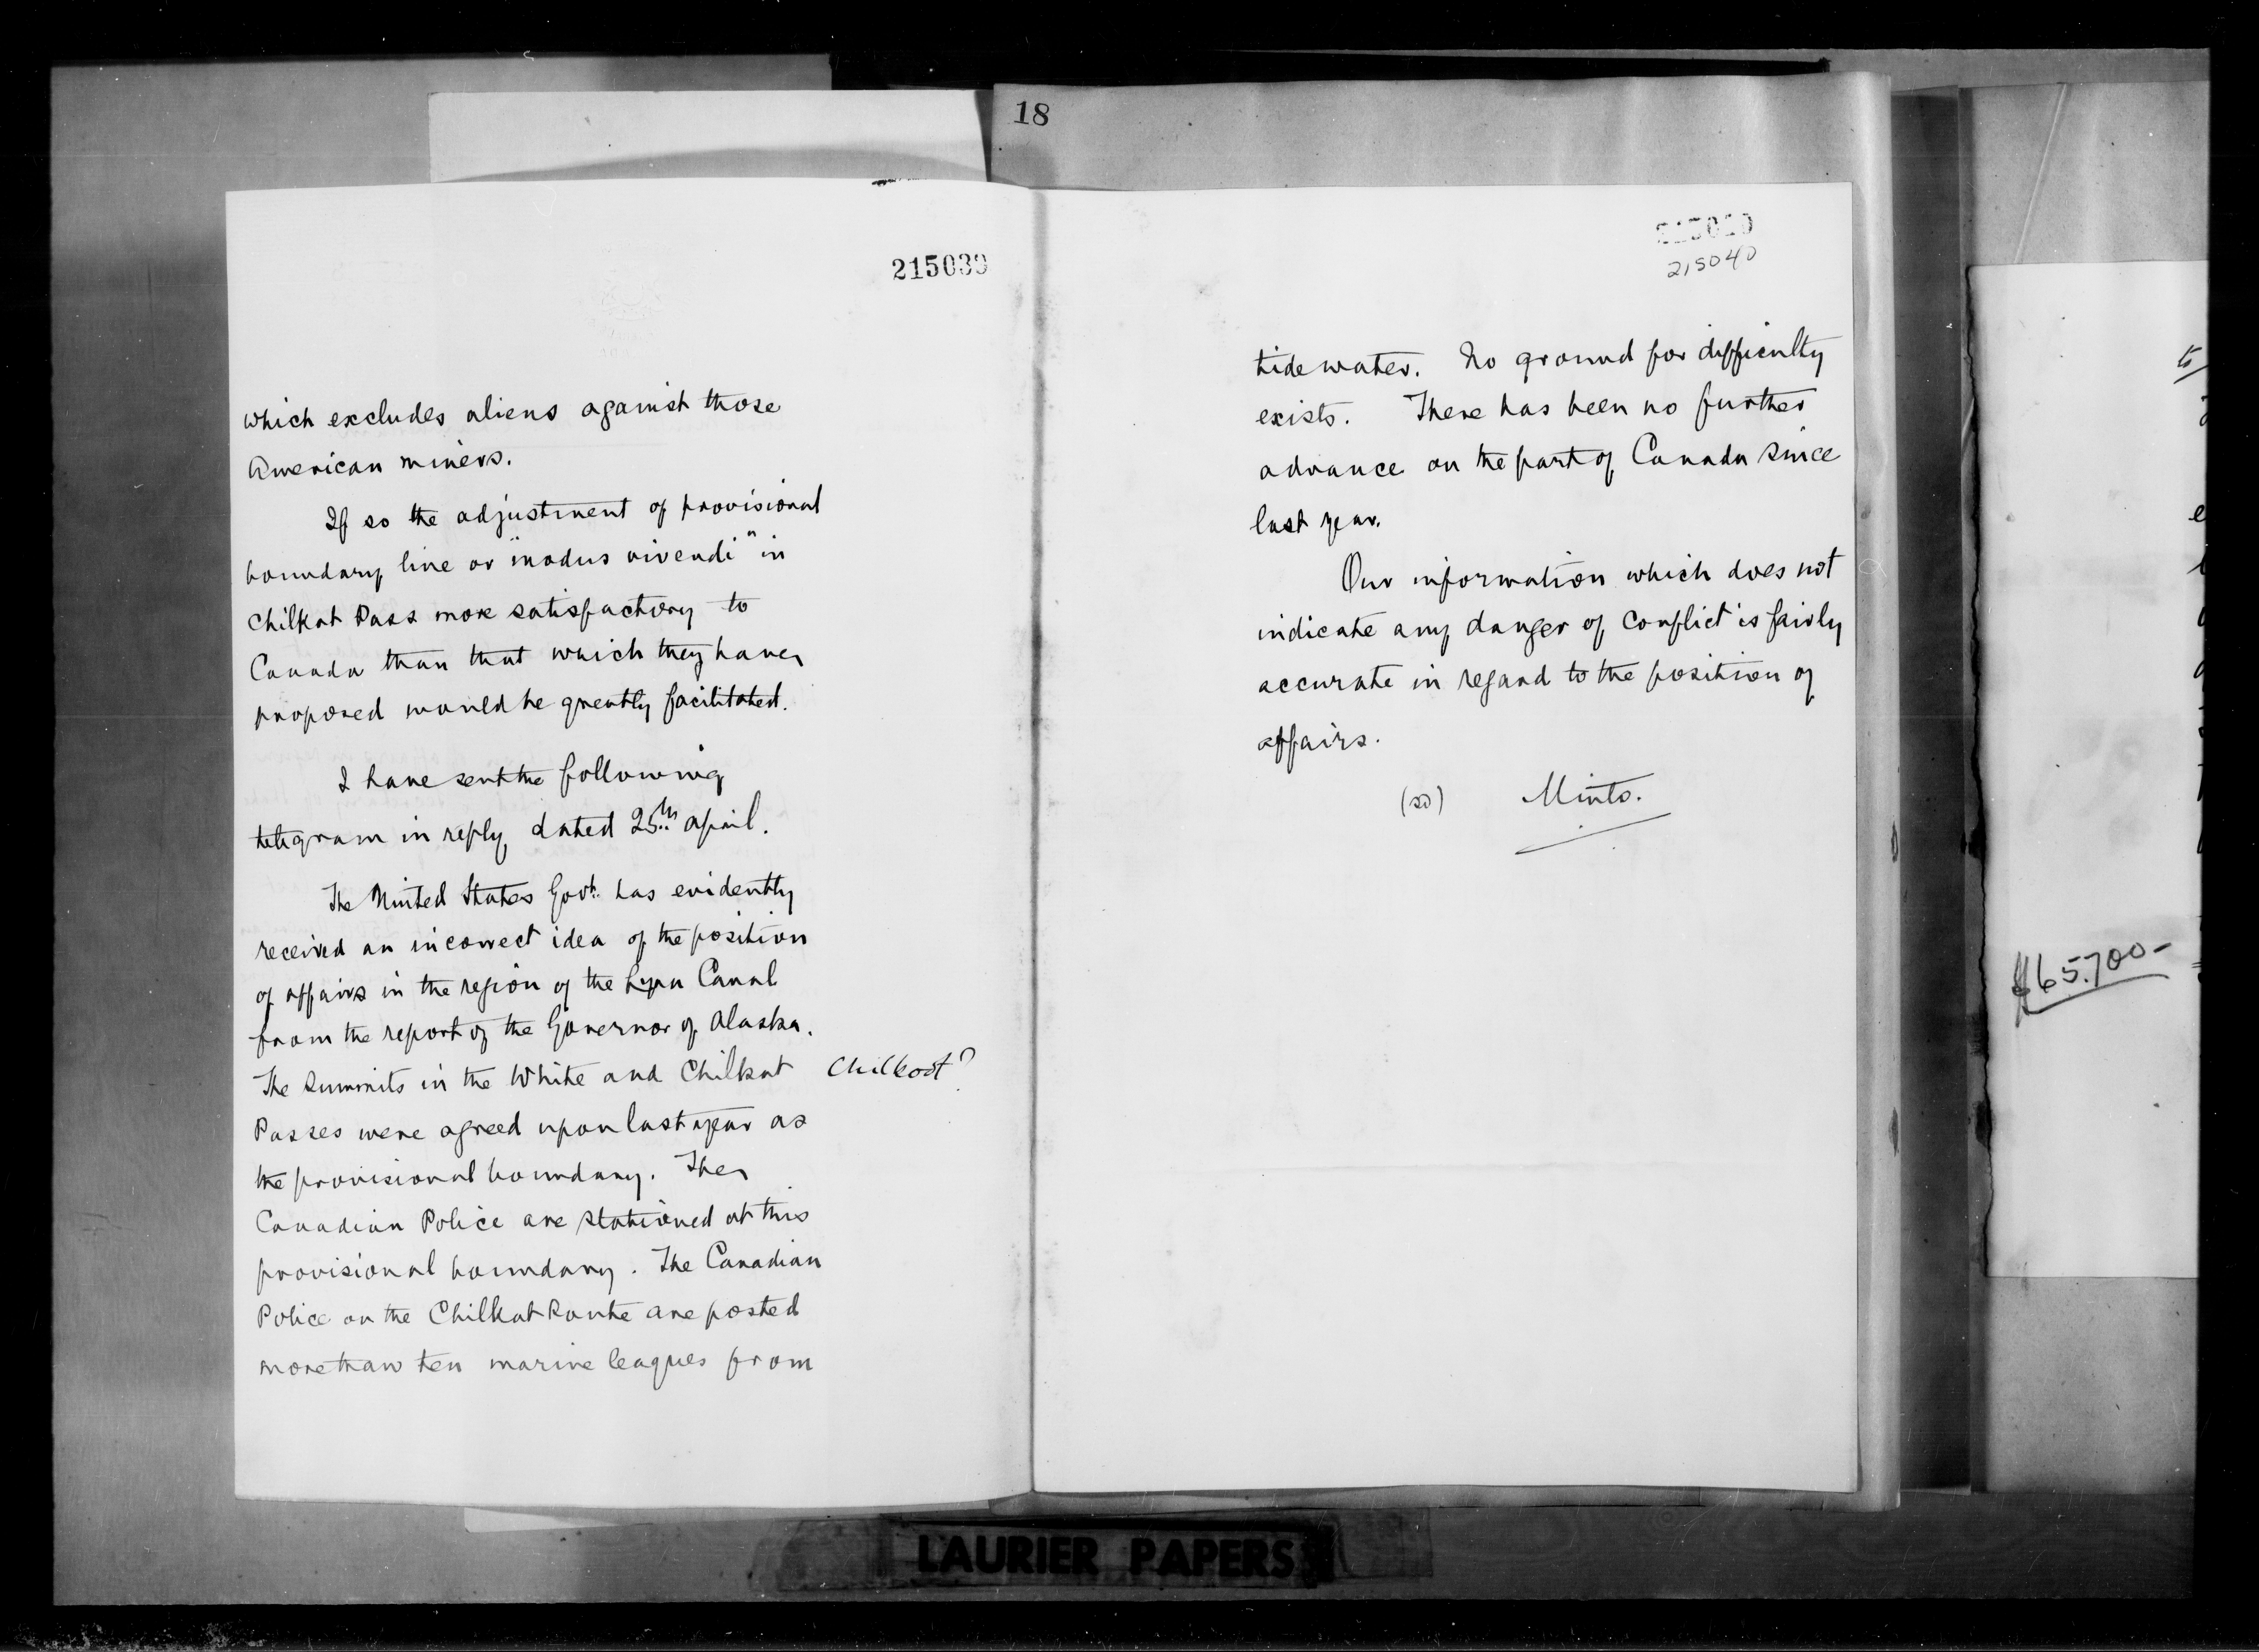 18
215039
which excludes aliens against those
American miners.
If so the adjustment of provisional
boundary line or "modus vivendi" in
Chilkat Pass more satisfactory to
Canada than that which they have
proposed would be greatly facilitated.
I have sent the following
telegram in reply, dated 25th April.
The United States Govt. has evidently
received an incorrect idea of the position
of affairs in the region of the Lynn Canal
from the report of the Governor of Alaska.
The Summits in the White and Chilkat Chilkoot?
Passes were agreed upon last year as
the provisional boundary. The
Canadian Police are stationed at this
provisional boundary. The Canadian
Police on the Chilkat Route are posted
more than ten marine leagues from
215040
tide water. No ground for difficulty
exists. There has been no further
advance on the part of Canada since
last year.
Our information which does not
indicate any danger of conflict is fairly
accurate in regard to the position of
affairs.
(sd) Minto.
to
$65.700-
LAURIER PAPERS